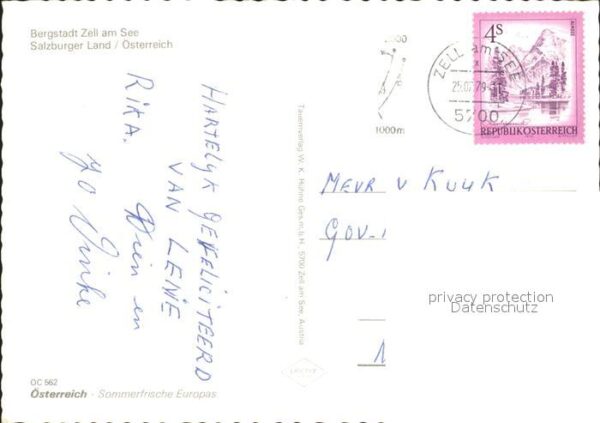 Bergstadt Zell am See
Salzburger Land / Österreich
HARTELYK GEFELICITEERD
VAN LENIE
RIKA.
Dien en
Jo Vinke
OC 562
Österreich - Sommerfrische Europas
Tauernverlag W. K. Hühne Ges.m.b.H., 5700 Zell am See, Austria
1000m
ZELL am SEE
25.07.79
5700
4S
REPUBLIK ÖSTERREICH
MEVR V KUUK
GOV
privacy protection
Datenschutz